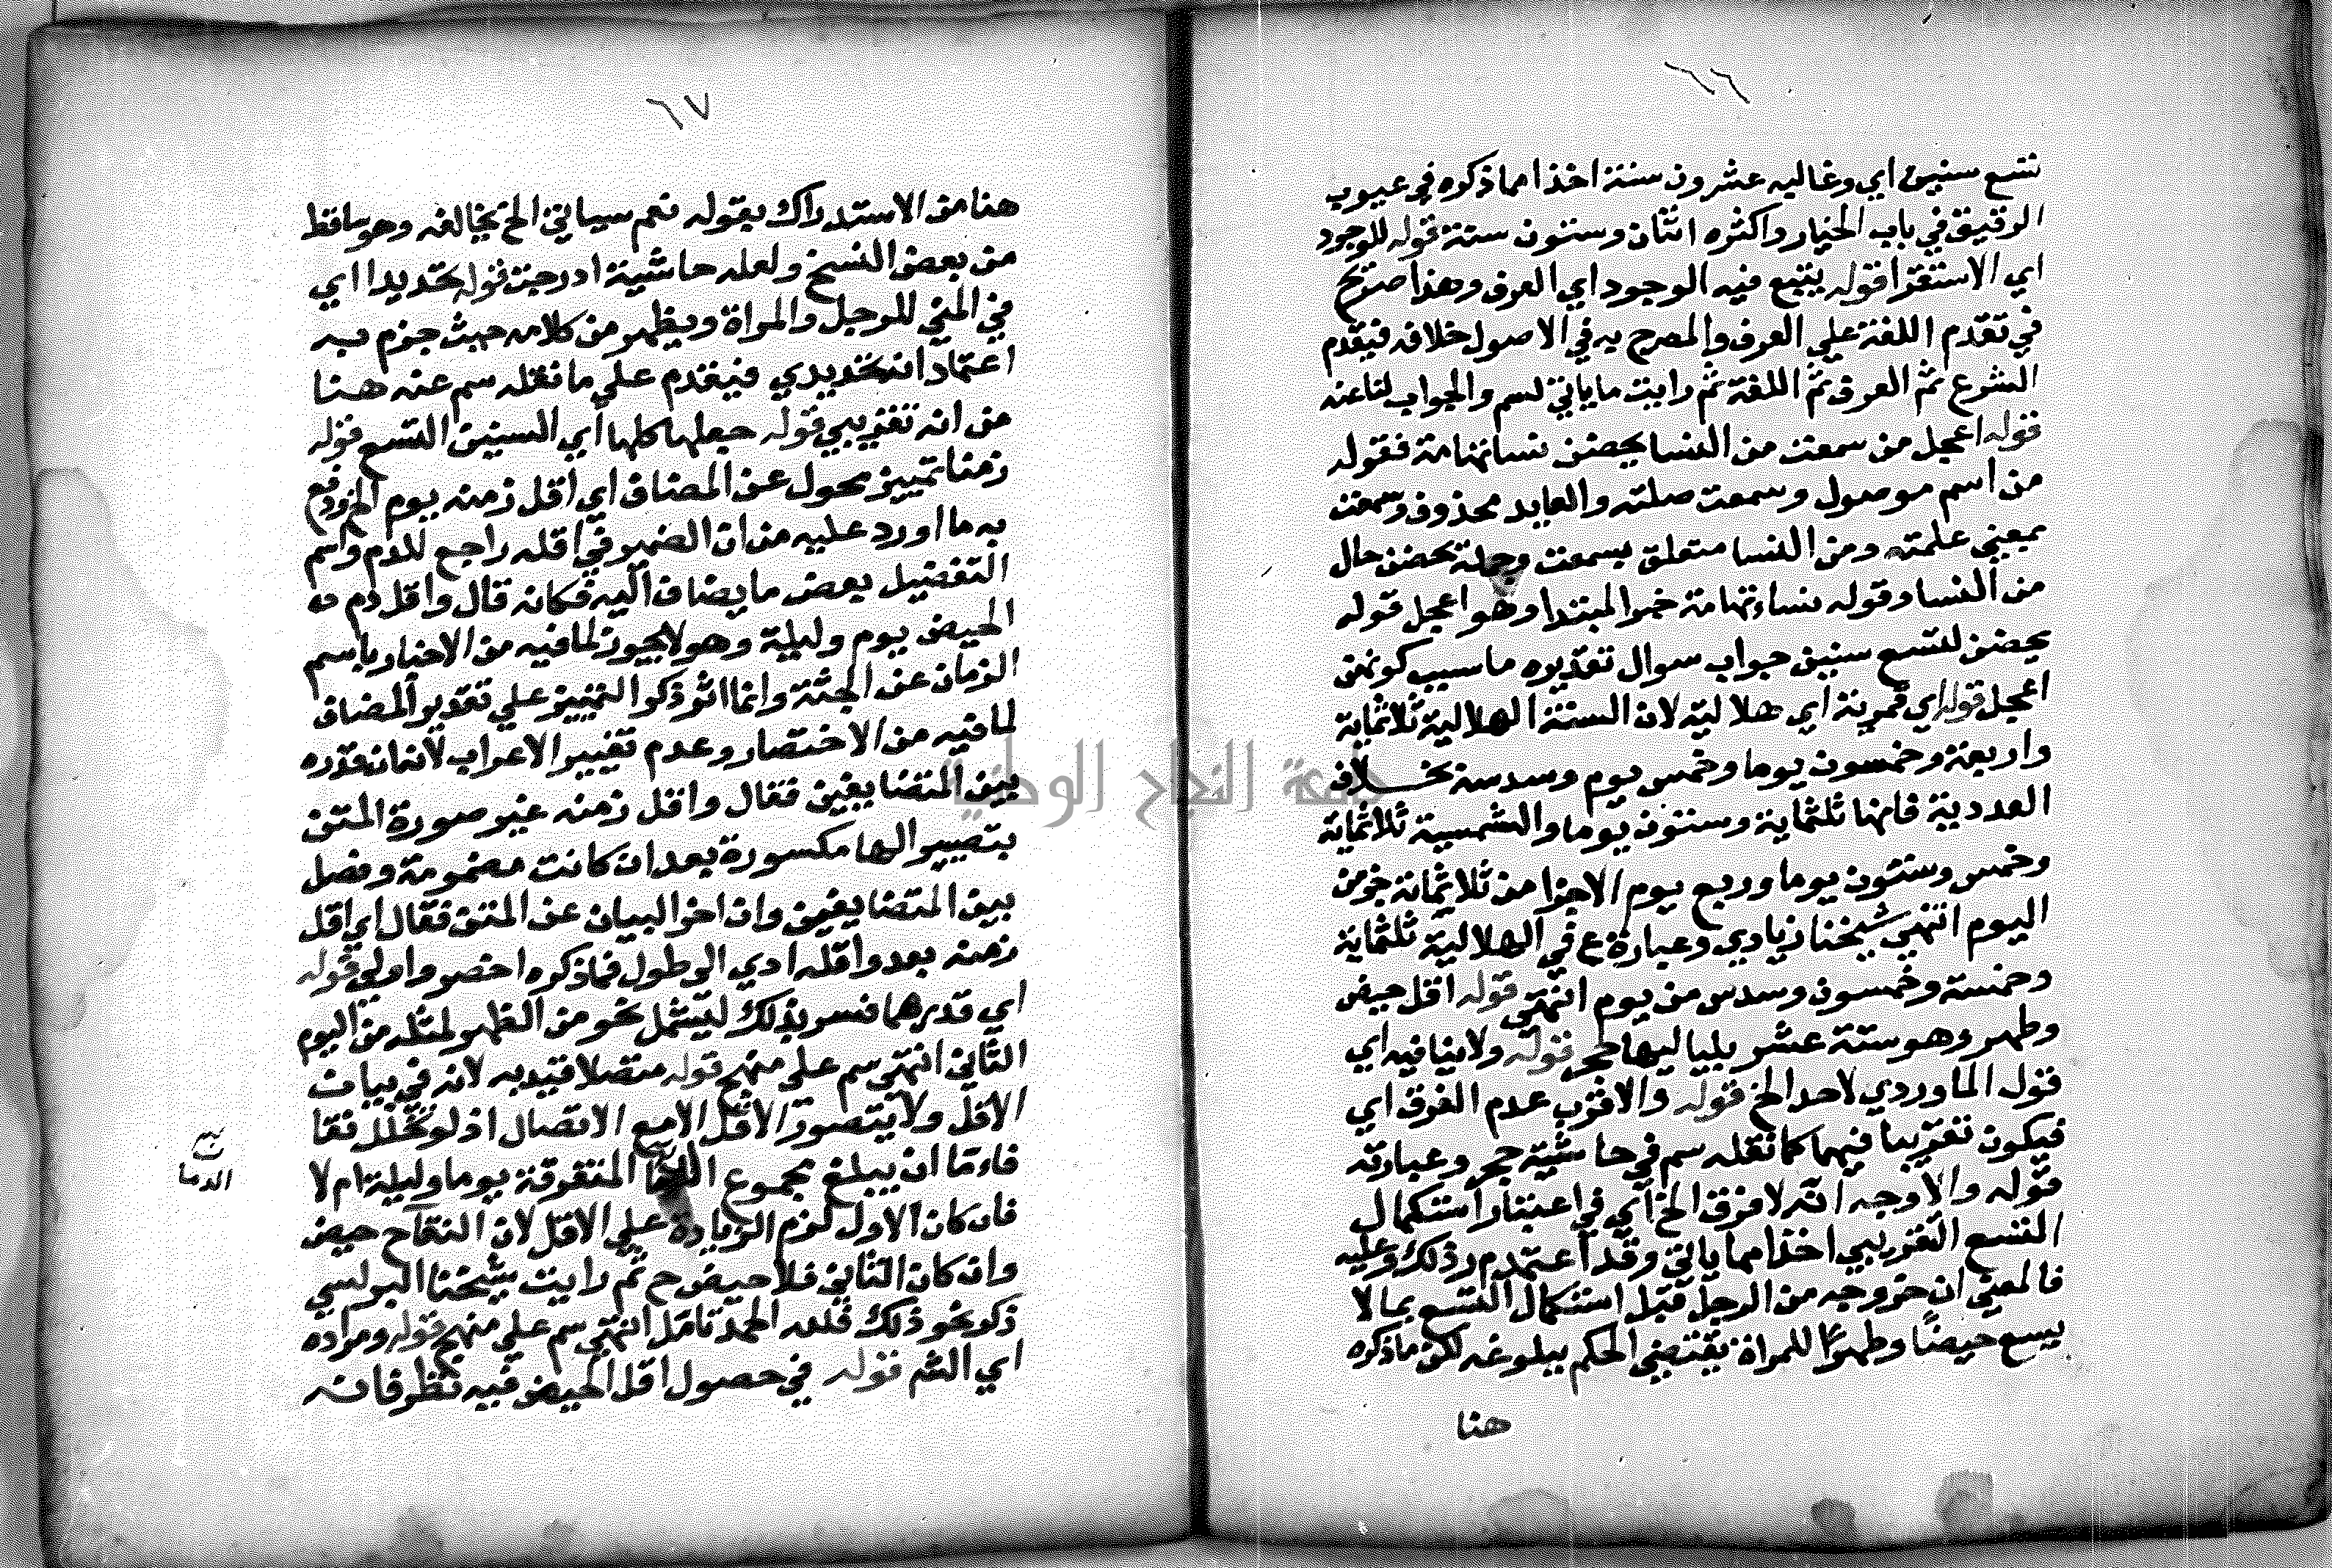 ٦٦
تسع سنين اي وغاليه عشرون سنة اخذا مما ذكره في عيوب
الرقيق في باب الخيار واكثره اثنان وستون سنة قوله للوجود
اي الاستقرا قوله يتبع فيه الوجود اي العرف وهذا صريح
في تقدم اللغة علي العرف والمصرح به في الاصول خلافه فيقدم
الشرع ثم العرف ثم اللغة ثم رايت ما ياتي لسم والجواب لنا عنه
قوله اعجل من سمعت من النسا يحضن نسا تهامة فقوله
من اسم موصول وسمعت صلته والعايد محذوف وسمعت
بمعني علمته ومن النسا متعلق بسمعت وجملة يحضن حال
من النسا وقوله نساء تهامة خبر المبتدا وهو اعجل قوله
يحضن لتسع سنين جواب سوال تقديره ما سبب كونهن
اعجل قوله اي قمرية اي هلالية لان السنة الهلالية ثلاثماية
واربعة وخمسون يوما وخمس يوم وسدسه بخلاف
العددية فانها ثلثماية وستون يوما والشمسية ثلاثماية
وخمس وستون يوما وربع يوم الاجزا من ثلاثماية جزء من
اليوم انتهي شيخنا زيادي وعبارة ع في الهلالية ثلثماية
وخمسة وخمسون وسدس من يوم انتهي قوله اقل حيض
وطهر وهو ستة عشر بلياليها حجر قوله ولا ينافيه اي
قول الماوردي لاحد الخ قوله والاقرب عدم الفرق اي
فيكون تقريبا فيهما كما نقله سم في حاشية حجر وعبارته
قوله والاوجه انه لا فرق الخ اي في اعتبار استكمال
التسع التقريبي اخذا مما ياتي وقد اعتمد م ر ذلك وعليه
فالمعني ان خروجه من الرجل قبل استكمال التسع بما لا
يسع حيضا وطهرا للمراة يقتضي الحكم ببلوغه لكن ماذكره
هنا
٦٧
هنا من الاستدراك بقوله نعم سياتي الخ يخالفه وهو ساقط
من بعض النسخ ولعله حاشية ادرجت قوله تحديدا اي
في المني للرجل والمراة ويظهر من كلامه حيث جزم به
اعتماد انه تحديدي فيقدم علي ما نقله سم عنه هنا
من انه تقريبي قوله جعلها كلها اي السنين التسع قوله
زمنا تمييز محول عن المضاف اي اقل زمنه يوم الخ ودفع
به ما اورد عليه من ان الضمير في اقله راجع للدم واسم
التفضيل بعض ما يضاف اليه فكانه قال واقل دم
الحيض يوم وليلة وهو لا يجوز لما فيه من الاخبار باسم
الزمان عن الجثة وانما اثر ذكر التمييز علي تقدير المضاف
لما فيه من الاختصار وعدم تغيير الاعراب لانه ان قدره
بين المتضايفين فقال واقل زمنه غير صورة المتن
بتصيير الها مكسورة بعد ان كانت مضمومة وفصل
بين المتضايفين وان اخر البيان عن المتن فقال اي اقل
زمنه بعد واقله ادي الي طول فما ذكره اخصر واولي قوله
اي قدرهما فسر بذلك ليشمل نحو من الظهر لمثله من اليوم
الثاني انتهي سم علي منهج قوله متصلا قيد به لانه في بيان
الاقل ولا يتصور الاقل الا مع الاتصال اذ لو تخلل نقا
فاما ان يبلغ مجموع المتفرقة يوما وليلة ام لا
فان كان الاول لزم الزيادة علي الاقل لان النقا ح حيض
وان كان الثاني فلا حيض ح ثم رايت شيخنا البرلسي
ذكر نحو ذلك فلله الحمد تامل انتهي سم علي منهج قوله ومراده
اي الشه قوله في حصول اقل الحيض فيه نظر فانه
الدما
جامعة النجاح الوطنية